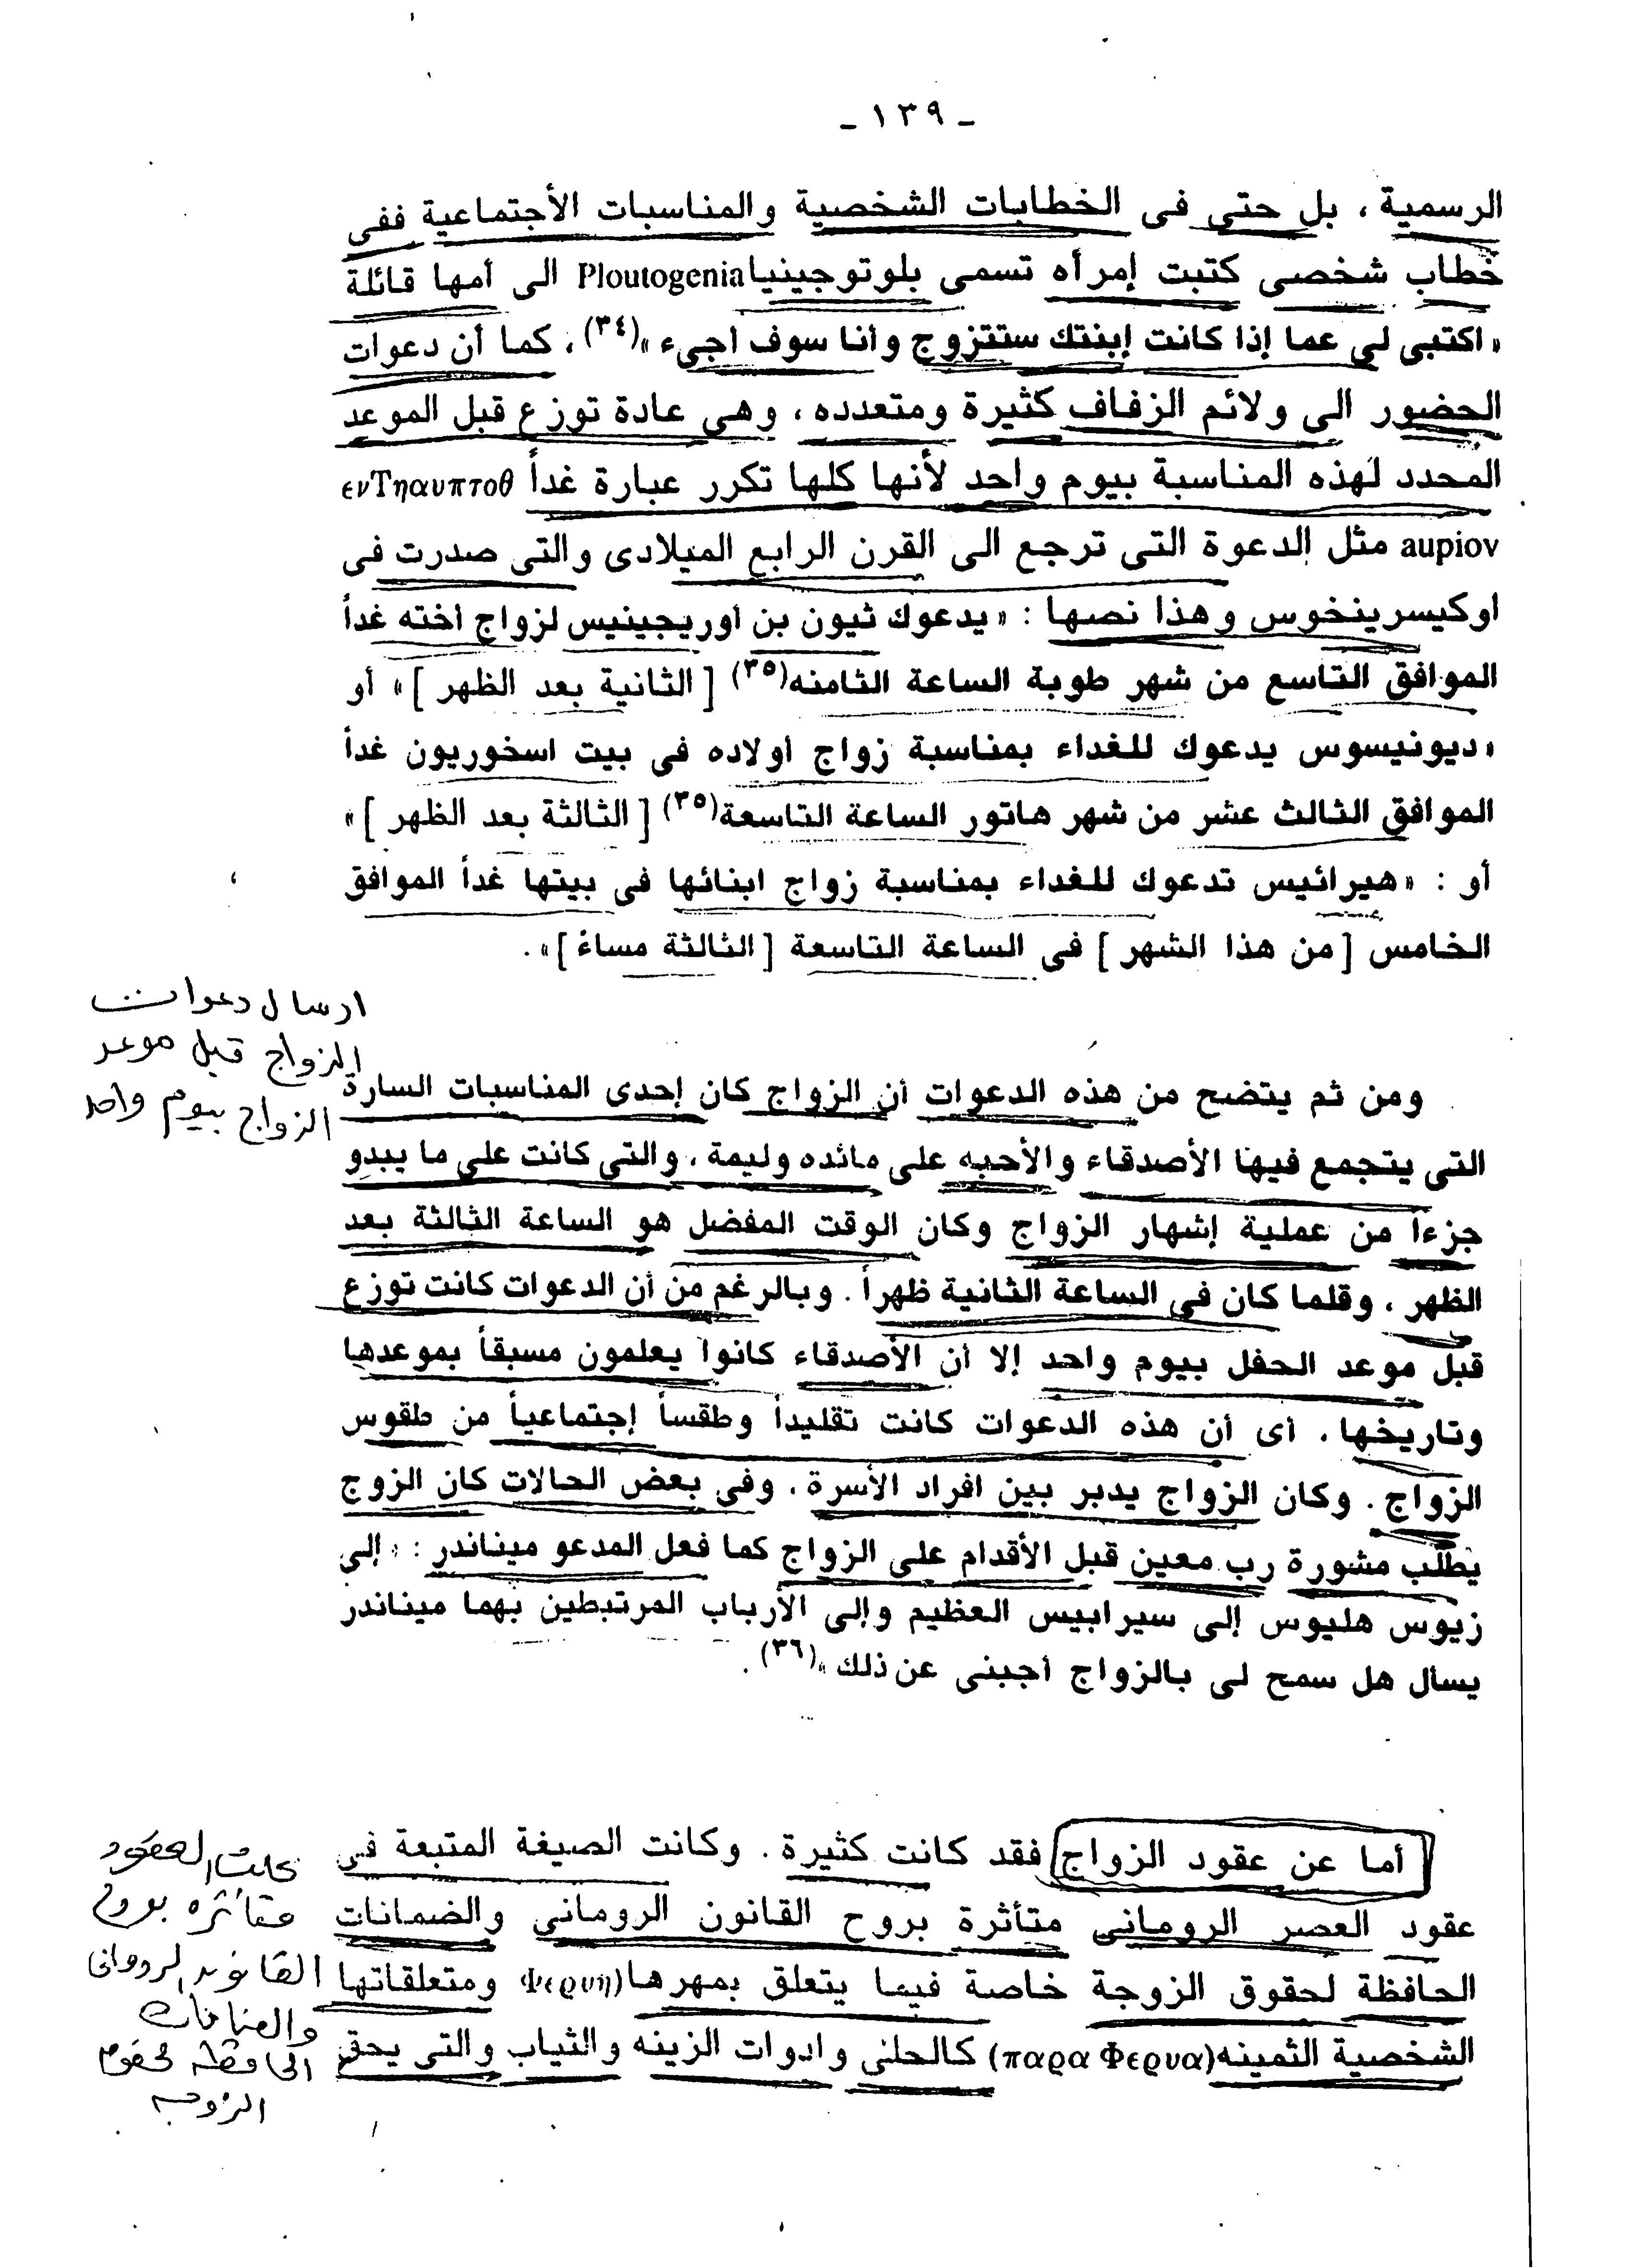 - ١٣٩ -
الرسمية ، بل حتى فى الخطابات الشخصية والمناسبات الأجتماعية ففى
خطاب شخصى كتبت إمرأه تسمى بلوتوجينيا Ploutogenia الى أمها قائلة
« اكتبى لى عما إذا كانت إبنتك ستتزوج وأنا سوف اجىء »(٣٤) ، كما أن دعوات
الحضور الى ولائم الزفاف كثيرة ومتعدده ، وهى عادة توزع قبل الموعد
المحدد لهذه المناسبة بيوم واحد لأنها كلها تكرر عبارة غداً ενΤηαυπτοθ
aupiov مثل الدعوة التى ترجع الى القرن الرابع الميلادى والتى صدرت فى
اوكيسرينخوس وهذا نصها : « يدعوك ثيون بن أوريجينيس لزواج اخته غداً
الموافق التاسع من شهر طوبة الساعة الثامنه(٣٥) [ الثانية بعد الظهر ] » أو
« ديونيسوس يدعوك للغداء بمناسبة زواج اولاده فى بيت اسخوريون غداً
الموافق الثالث عشر من شهر هاتور الساعة التاسعة(٣٥) [ الثالثة بعد الظهر ] »
أو : « هيرائيس تدعوك للغداء بمناسبة زواج ابنائها فى بيتها غداً الموافق
الخامس [ من هذا الشهر ] فى الساعة التاسعة [ الثالثة مساءً ] » .
ارسال دعوات
الزواج قبل موعد
الزواج بيوم واحد
ومن ثم يتضح من هذه الدعوات أن الزواج كان إحدى المناسبات السارة
التى يتجمع فيها الأصدقاء والأحبه على مائده وليمة ، والتى كانت على ما يبدو
جزءاً من عملية إشهار الزواج وكان الوقت المفضل هو الساعة الثالثة بعد
الظهر ، وقلما كان فى الساعة الثانية ظهراً . وبالرغم من أن الدعوات كانت توزع
قبل موعد الحفل بيوم واحد إلا أن الأصدقاء كانوا يعلمون مسبقاً بموعدها
وتاريخها ، أى أن هذه الدعوات كانت تقليداً وطقساً إجتماعياً من طقوس
الزواج . وكان الزواج يدبر بين افراد الأسرة ، وفى بعض الحالات كان الزوج
يطلب مشورة رب معين قبل الأقدام على الزواج كما فعل المدعو ميناندر : « إلى
زيوس هليوس إلى سيرابيس العظيم وإلى الأرباب المرتبطين بهما ميناندر
يسأل هل سمح لى بالزواج أجبنى عن ذلك »(٣٦) .
أما عن عقود الزواج فقد كانت كثيرة . وكانت الصيغة المتبعة فى
عقود العصر الرومانى متأثرة بروح القانون الرومانى والضمانات
الحافظة لحقوق الزوجة خاصة فيما يتعلق بمهرها (Φερυη ومتعلقاتها
الشخصية الثمينه (παρα Φερυα) كالحلى وادوات الزينه والثياب والتى يحق
كانت العقود
متأثره بروح
القانون الرومانى
والضمانات
الحافظة لحقوق
الزوجه